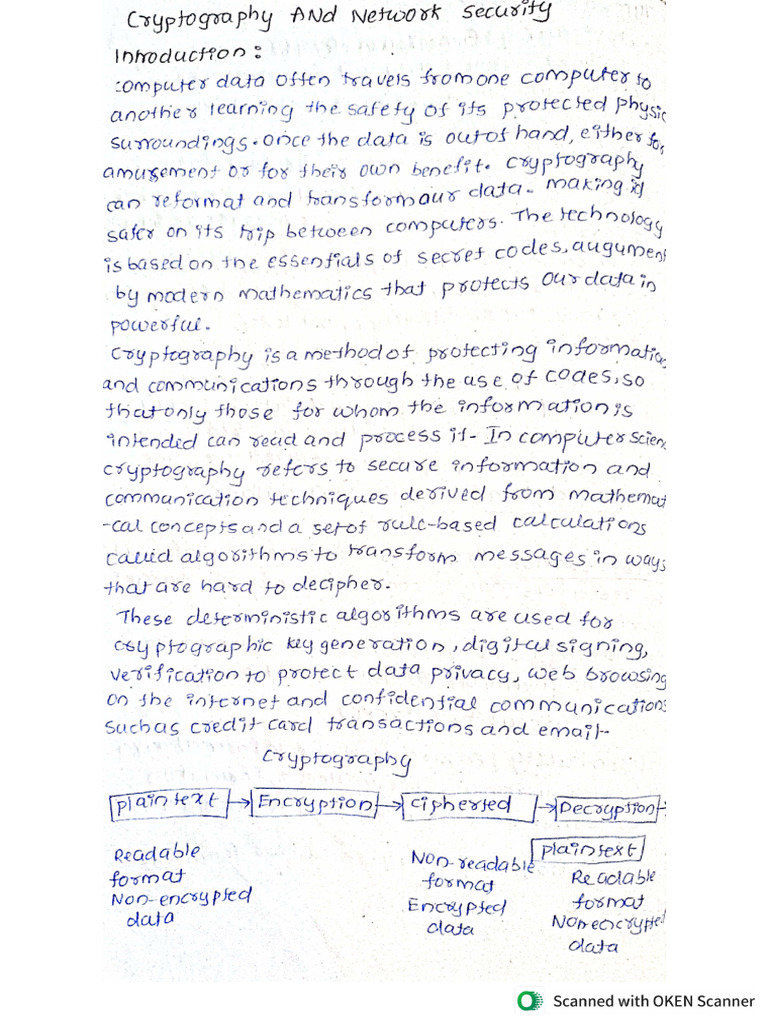 Cryptography And Network Security
Introduction:
computer data often travels from one computer to
another learning the safety of its protected physic
surroundings. once the data is out of hand, either for
amusement or for their own benefit. cryptography
can reformat and transform our data. making it
safer on its trip between computers. The technology
is based on the essentials of secret codes, augument
by modern mathematics that protects our data in
powerful.
Cryptography is a method of protecting informatio
and communications through the use of codes, so
that only those for whom the information is
intended can read and process it- In computer scien
cryptography refers to secure information and
communication techniques derived from mathemat
-cal concepts and a set of rule-based calculations
called algorithms to transform messages in ways
that are hard to decipher.
These deterministic algorithms are used for
cryptographic key generation, digital signing,
verification to protect data privacy, web browsing
on the internet and confidential communications
such as credit card transactions and email-
Cryptography
Plaintext → Encryption → cipherted → Decryption
Plaintext
Readable
format
Non-encrypted
data
Non-readable
format
Encrypted
data
Readable
format
Nonencrypted
data
Scanned with OKEN Scanner